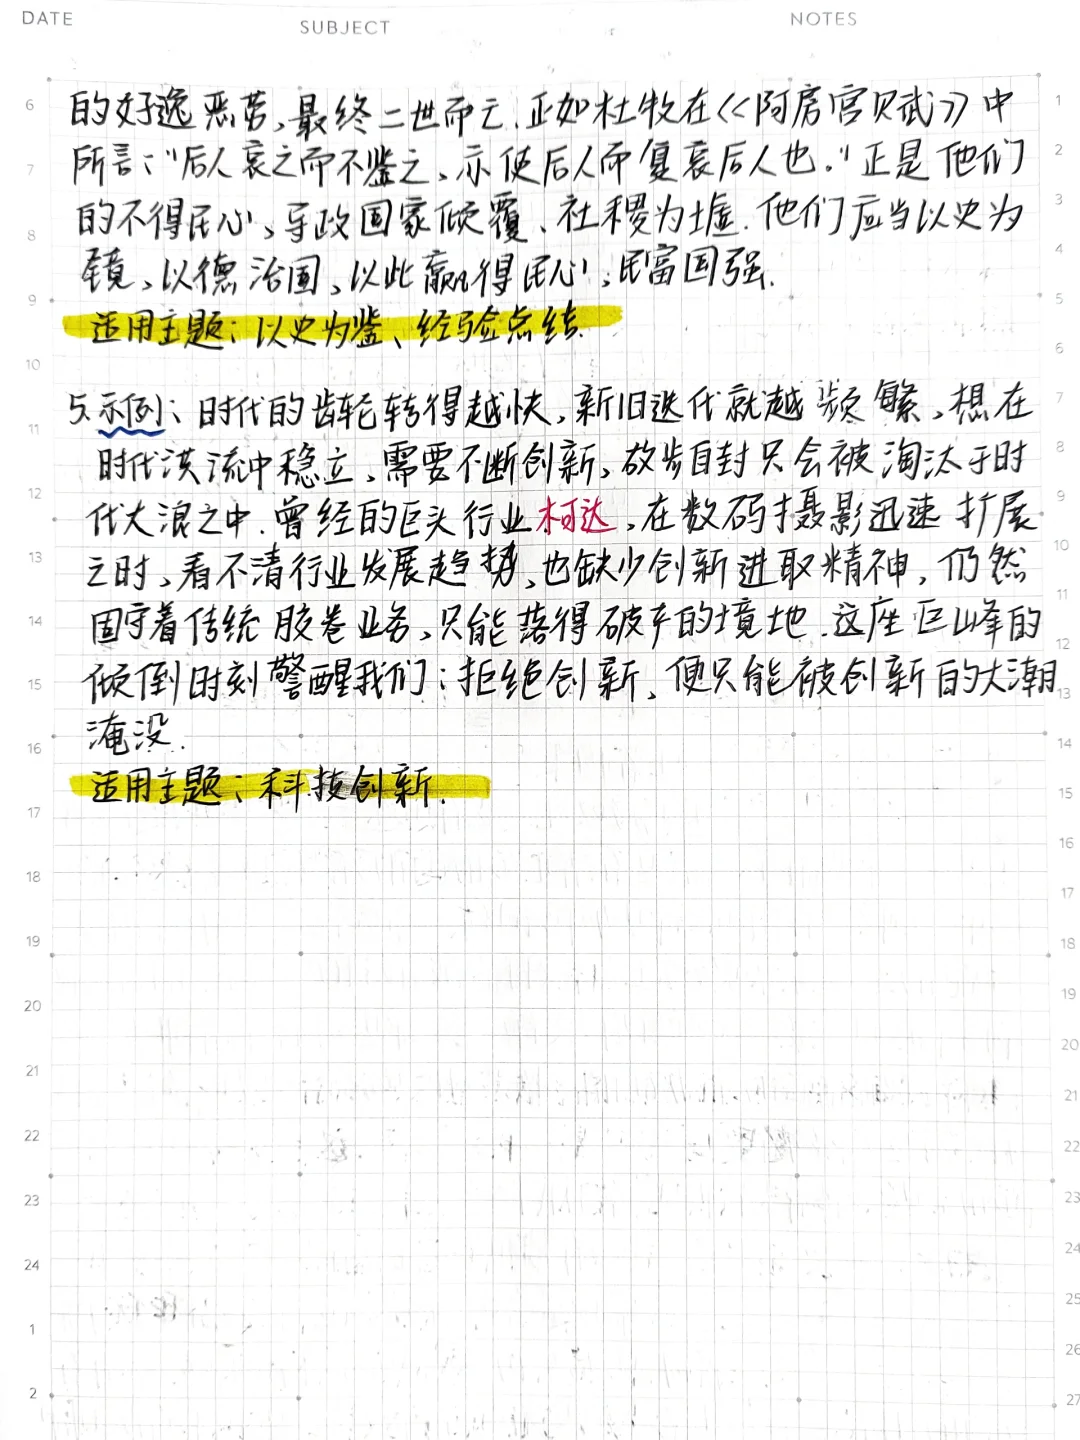 DATE SUBJECT NOTES
的好逸恶劳、最终二世而亡.正如杜牧在《阿房宫贝武》中
所言:"后人哀之而不鉴之、亦使后人而复哀后人也."正是他们
的不得民心、导致国家倾覆、社稷为墟.他们应当以史为
镜、以德治国、以此赢得民心、民富国强.
适用主题:以史为鉴、经验总结.
5.示例:时代的齿轮转得越快、新旧迭代就越频繁、想在
时代洪流中稳立、需要不断创新、故步自封只会被淘汰于时
代大浪之中.曾经的巨头行业柯达、在数码摄影迅速扩展
之时、看不清行业发展趋势、也缺少创新进取精神、仍然
固守着传统胶卷业务、只能落得破产的境地.这座巨山峰的
倾倒时刻警醒我们:拒绝创新、便只能被创新的大潮
淹没.
适用主题:科技创新.